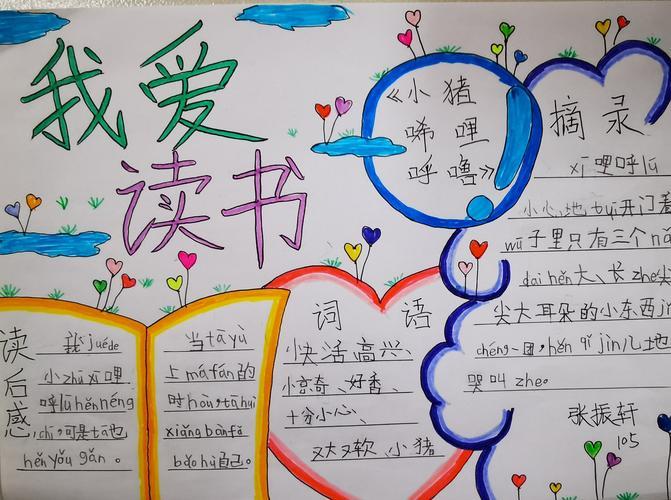 我爱
读书
《小猪
唏哩
呼噜》
摘录
xī哩呼lū
小心地tuī开门看
wū子里只有三个nǎ
dai hěn大、长zhe
尖大耳朵的小东西jǐn
chéng一团,hěn qī jīn儿地
哭叫zhe。
张振轩
105
词语
快活高兴、
惊奇、好香、
十分小心、
又大又软、小猪
读后感
我juéde
小zhū xī哩
呼lū hěn néng
chī,可是tā也
hěn yǒu gǎn。
当tā yù
上má fán的
时hòu,tā huì
xiǎng bàn fǎ
bǎo hù自己。